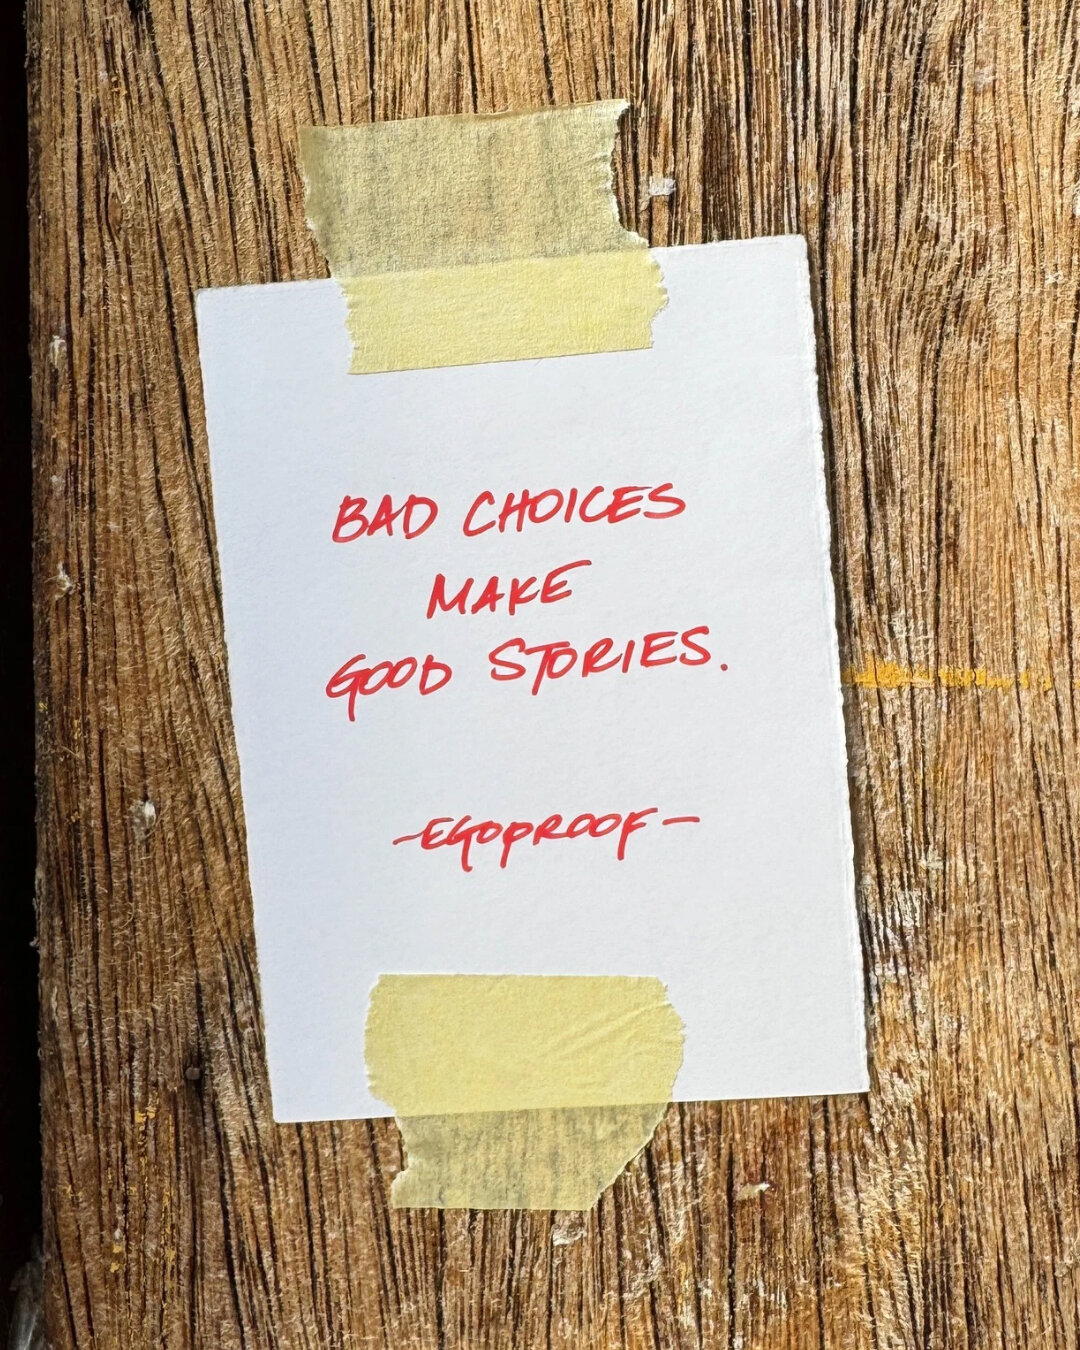 BAD CHOICES
MAKE
GOOD STORIES.
-EGOPROOF-